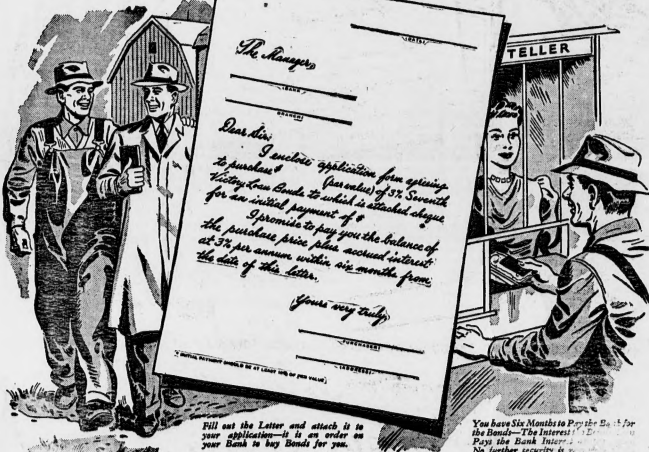 (DATE)
The Manager,
(BANK)
(BRANCH)
Dear Sir,
I enclose application form agreeing
to purchase $ (par value) of 3% Seventh
Victory Loan Bonds to which is attached cheque
for an initial payment of $
I promise to pay you the balance of
the purchase price plus accrued interest
at 3% per annum within six months from
the date of this letter.
Yours very truly,
(PURCHASER)
(ADDRESS)
* INITIAL PAYMENT SHOULD BE AT LEAST 10% OF PAR VALUE
TELLER
Fill out the Letter and attach is to
your application—it is an order on
your Bank to buy Bonds for you.
You have Six Months to Pay the Bank for
the Bonds—The Interest
Pays the Bank
No further security is